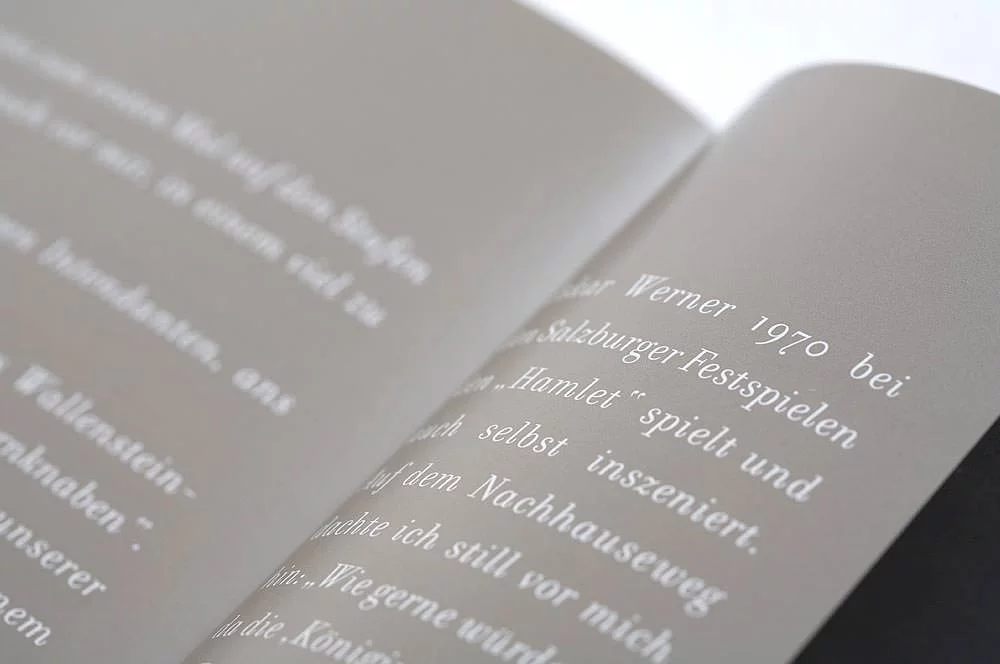 Mal auf den Stufen
vor mir, in einem viel zu
Intendanten, ans
Wallenstein-
rnknaben“.
unserer
nem
Werner 1970 bei
Salzburger Festspielen
„Hamlet“ spielt und
selbst inszeniert.
Auf dem Nachhauseweg
dachte ich still vor mich
hin: „Wie gerne würde
da die ‚Königin